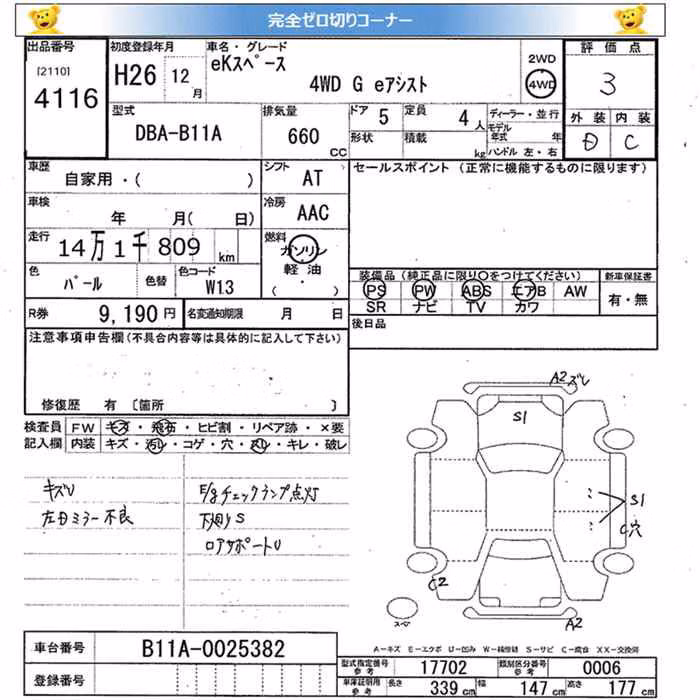 完全ゼロ切りコーナー
出品番号 初度登録年月 車名・グレード 評価点
[2110] 4116 H26 12月 eKスペース 4WD G eアシスト 2WD 4WD 3
型式 排気量 ドア 5 定員 4人 ディーラー・並行 外装 内装
DBA-B11A 660 CC 形状 積載 kg モデル年式 年 D C
ハンドル 左・右
車歴 シフト セールスポイント (正常に機能するものに限ります)
自家用・( ) AT
車検 年 月( 日) 冷房 AAC
走行 14万1千809 km 燃料 ガソリン 軽油 ・ ( )
色 パール 色替 色コード W13 装備品(純正品に限り○をつけてください) 新車保証書
PS PW ABS エアB AW 有・無
SR ナビ TV カワ
R券 9,190円 名変通知期限 月 日 後日品
注意事項申告欄(不具合内容等は具体的に記入して下さい)
修復歴 有 [箇所 ]
検査員 FW キズ・飛石・ヒビ割・リペア跡・×要
記入欄 内装 キズ・汚レ・コゲ・穴・スレ・キレ・破レ
キズU E/gチェックランプ点灯
左ミラー不良 下廻りS
ロアサポートU
A2ズレ
S1
S1
C穴
C2
A2
スペア
車台番号 B11A-0025382
A-キズ E-エクボ U-凹み W-補修跡 S-サビ C-腐食 XX-交換済
登録番号
型式指定番号 参考 17702 類別区分番号 参考 0006
車庫証明用 参考 長さ 339 cm 幅 147 cm 高さ 177 cm